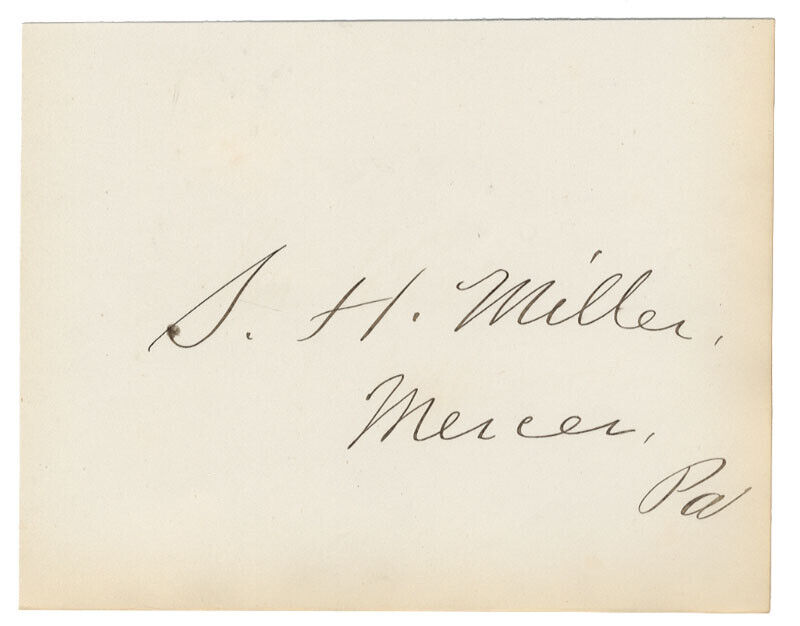 S. H. Miller,
Mercer,
Pa